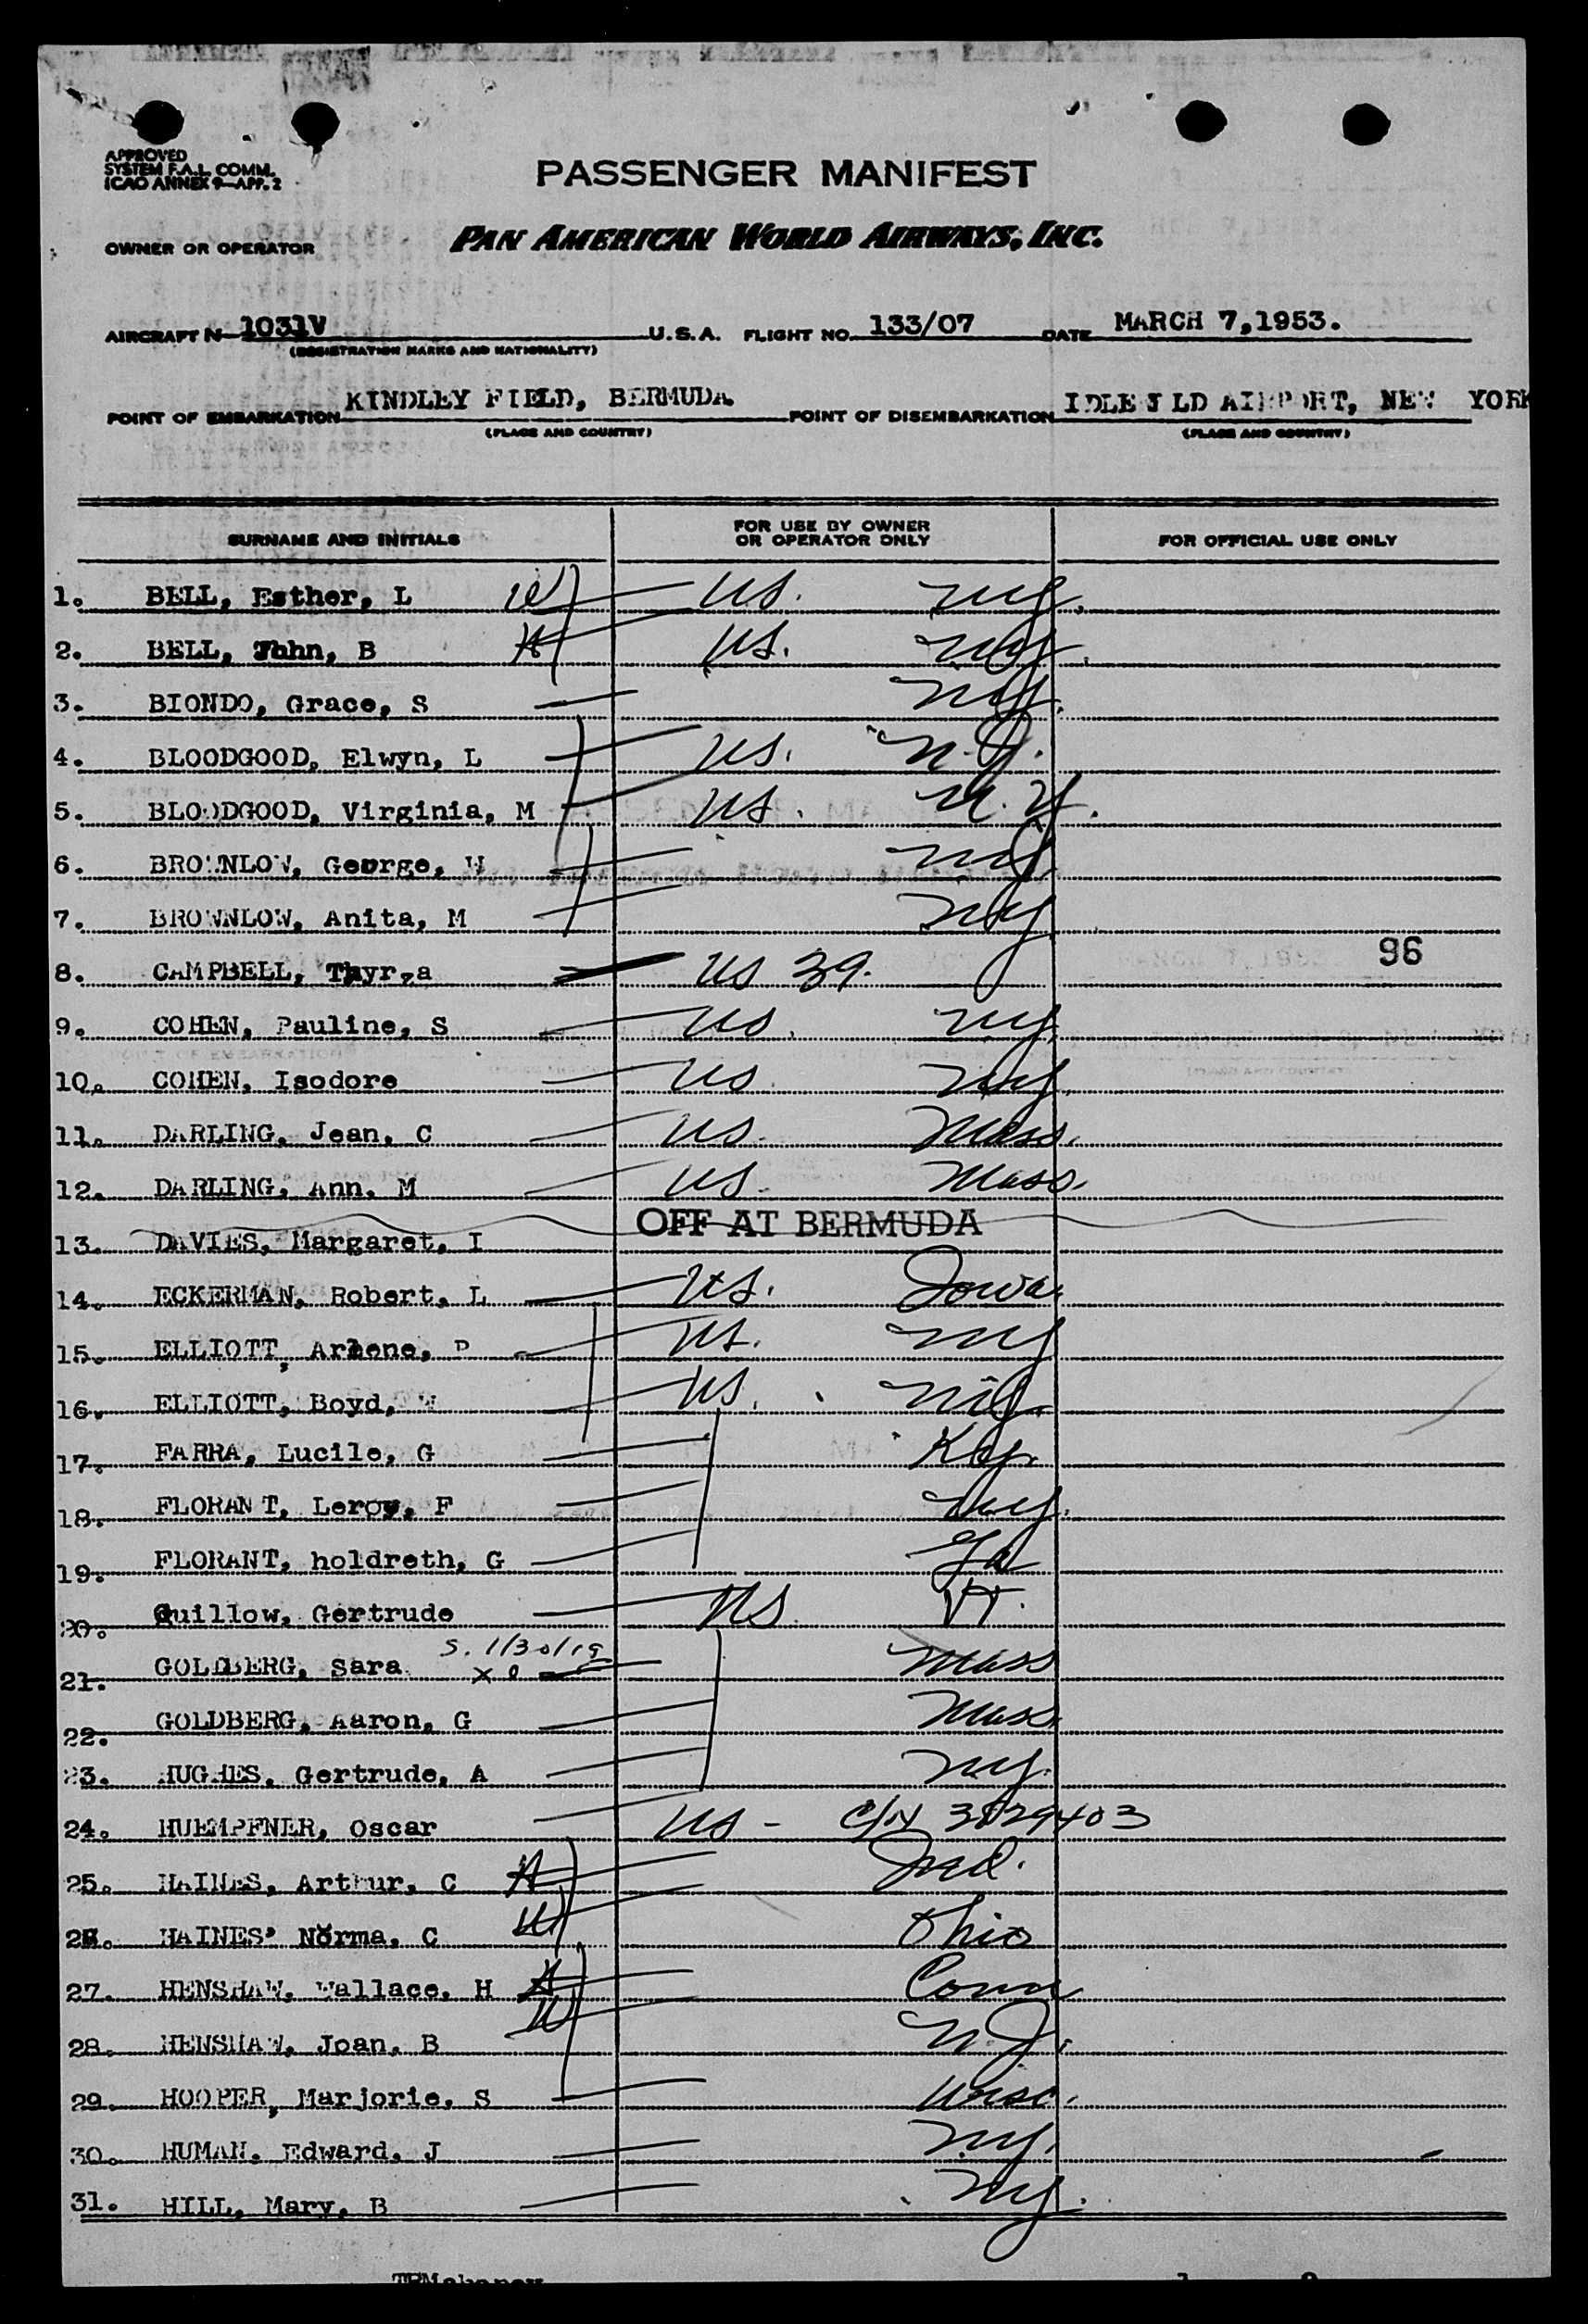 APPROVED
SYSTEM F.A.L. COMM.
ICAO ANNEX 9—APP. 2
PASSENGER MANIFEST
OWNER OR OPERATOR PAN AMERICAN WORLD AIRWAYS, INC.
AIRCRAFT N 1031V U.S.A. FLIGHT NO. 133/07 DATE MARCH 7,1953.
(REGISTRATION MARKS AND NATIONALITY)
POINT OF EMBARKATION KINDLEY FIELD, BERMUDA. POINT OF DISEMBARKATION IDLE LD AIRPORT, NEW YORK
(PLACE AND COUNTRY) (PLACE AND COUNTRY)
SURNAME AND INITIALS FOR USE BY OWNER OR OPERATOR ONLY FOR OFFICIAL USE ONLY
1. BELL, Esther, L W US. NY.
2. BELL, Jhhn, B H US. NY.
3. BIONDO, Grace, S NY.
4. BLOODGOOD, Elwyn, L US. N.J.
5. BLOODGOOD, Virginia, M US. N.Y.
6. BROWNLOW, George, W NY
7. BROWNLOW, Anita, M NY
8. CAMPBELL, Thyrza US 39. 96
9. COHEN, Pauline, S US. NY.
10. COHEN, Isodore US NY.
11. DARLING, Jean, C US. Mass.
12. DARLING, Ann, M US. Mass.
OFF AT BERMUDA
13. DAVIES, Margaret, I
14. ECKERMAN, Robert, L US. Iowa
15. ELLIOTT, Arlene, P US. NY
16. ELLIOTT, Boyd, W US. NY.
17. FARRA, Lucile, G Ky.
18. FLORANT, Leroy, F NY.
19. FLORANT, holdreth, G Ga
20. Guillow, Gertrude US. Vt.
21. GOLDBERG, Sara S. 1/30/19 X Mass
22. GOLDBERG, Aaron, G Mass.
23. HUGHES, Gertrude, A NY.
24. HUEMPFNER, Oscar US - C/N 3129403
25. HAINES, Arthur, C H Ind.
26. HAINES' Norma, C W Ohio
27. HENSHAW, Wallace, H H Conn
28. HENSHAW, Joan, B W N.J.
29. HOOPER, Marjorie, S Wisc.
30. HUMAN, Edward, J NY.
31. HILL, Mary, B NY.